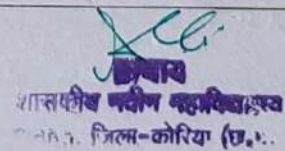 प्राचार्य
शासकीय नवीन महाविद्यालय
जिला-कोरिया (छ.ग.